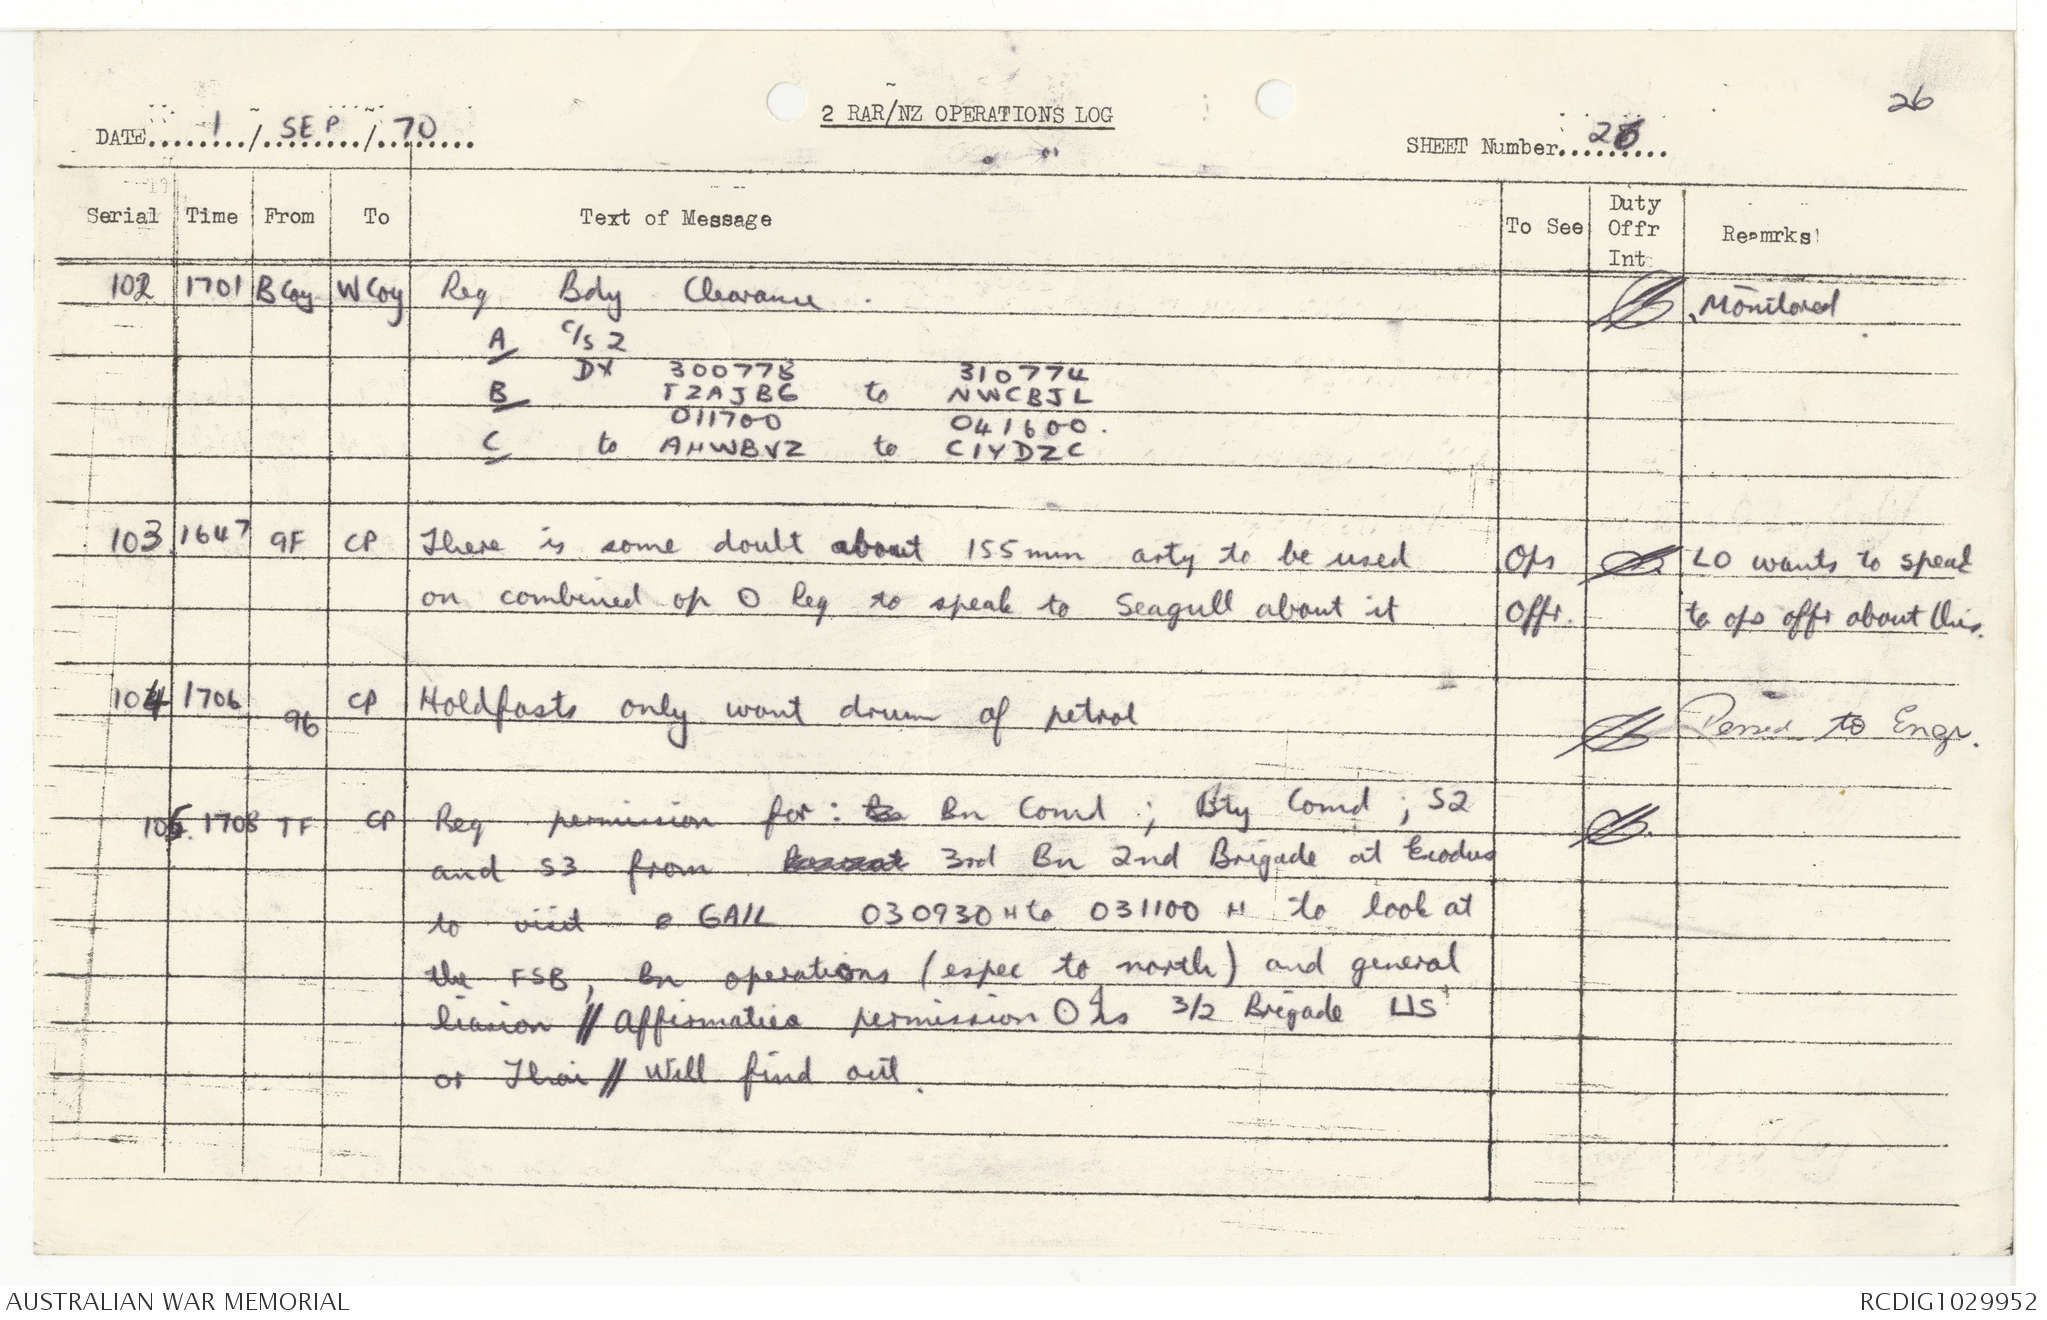 26
2 RAR/NZ OPERATIONS LOG
DATE 1 / SEP / 70
SHEET Number 26
Serial Time From To Text of Message To See Duty Offr Int Reamrks
102 1701 B Coy W Coy Req Bdy Clearance. Monitored
A C/S 2
DX 300778 310774
B TZAJBG to NWCBJL
011700 041600.
C to AHWBVZ to CIYDZC
103 1647 9F CP There is some doubt about 155mm arty to be used Ops LO wants to speak
on combined op O Req to speak to Seagull about it Offr. to ops offr about this.
104 1706 96 CP Holdfasts only want drum of petrol Passed to Engr.
105. 1708 TF CP Req permission for: Bn Comd ; Bty Comd ; S2
and S3 from 3rd Bn 2nd Brigade at Exodus
to visit GAIL 030930H to 031100 H to look at
the FSB, Bn operations (espec to north) and general
liasion // Affirmative permission O Is 3/2 Brigade US
or Thai // Will find out.
AUSTRALIAN WAR MEMORIAL
RCDIG1029952